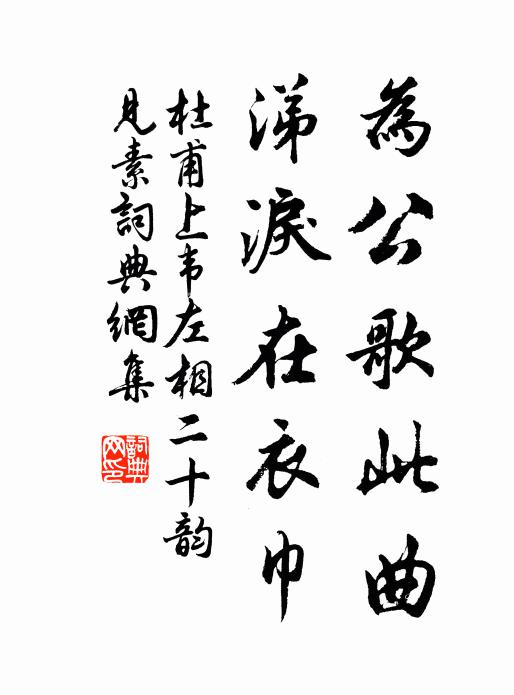 為公歌此曲
涕淚在衣巾
杜甫上韦左相二十韵
見素詞典網集
詞典
网印